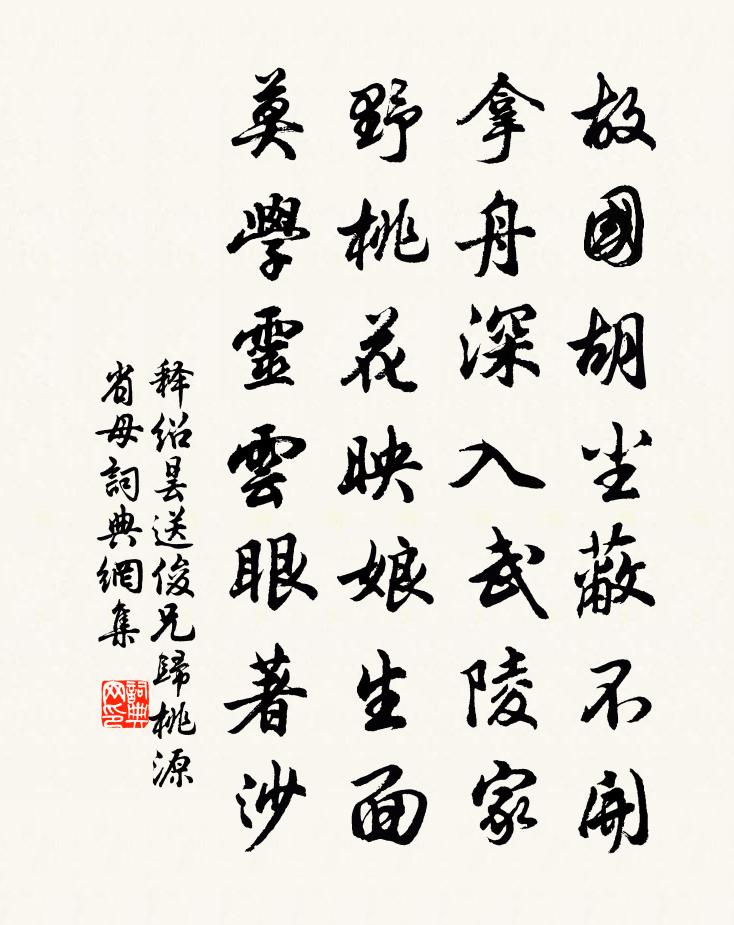 故國胡尘蔽不開
拿舟深入武陵家
野桃花映娘生面
莫學靈雲眼著沙
释绍昙送俊兄歸桃源
省母詞典網集
詞典网印